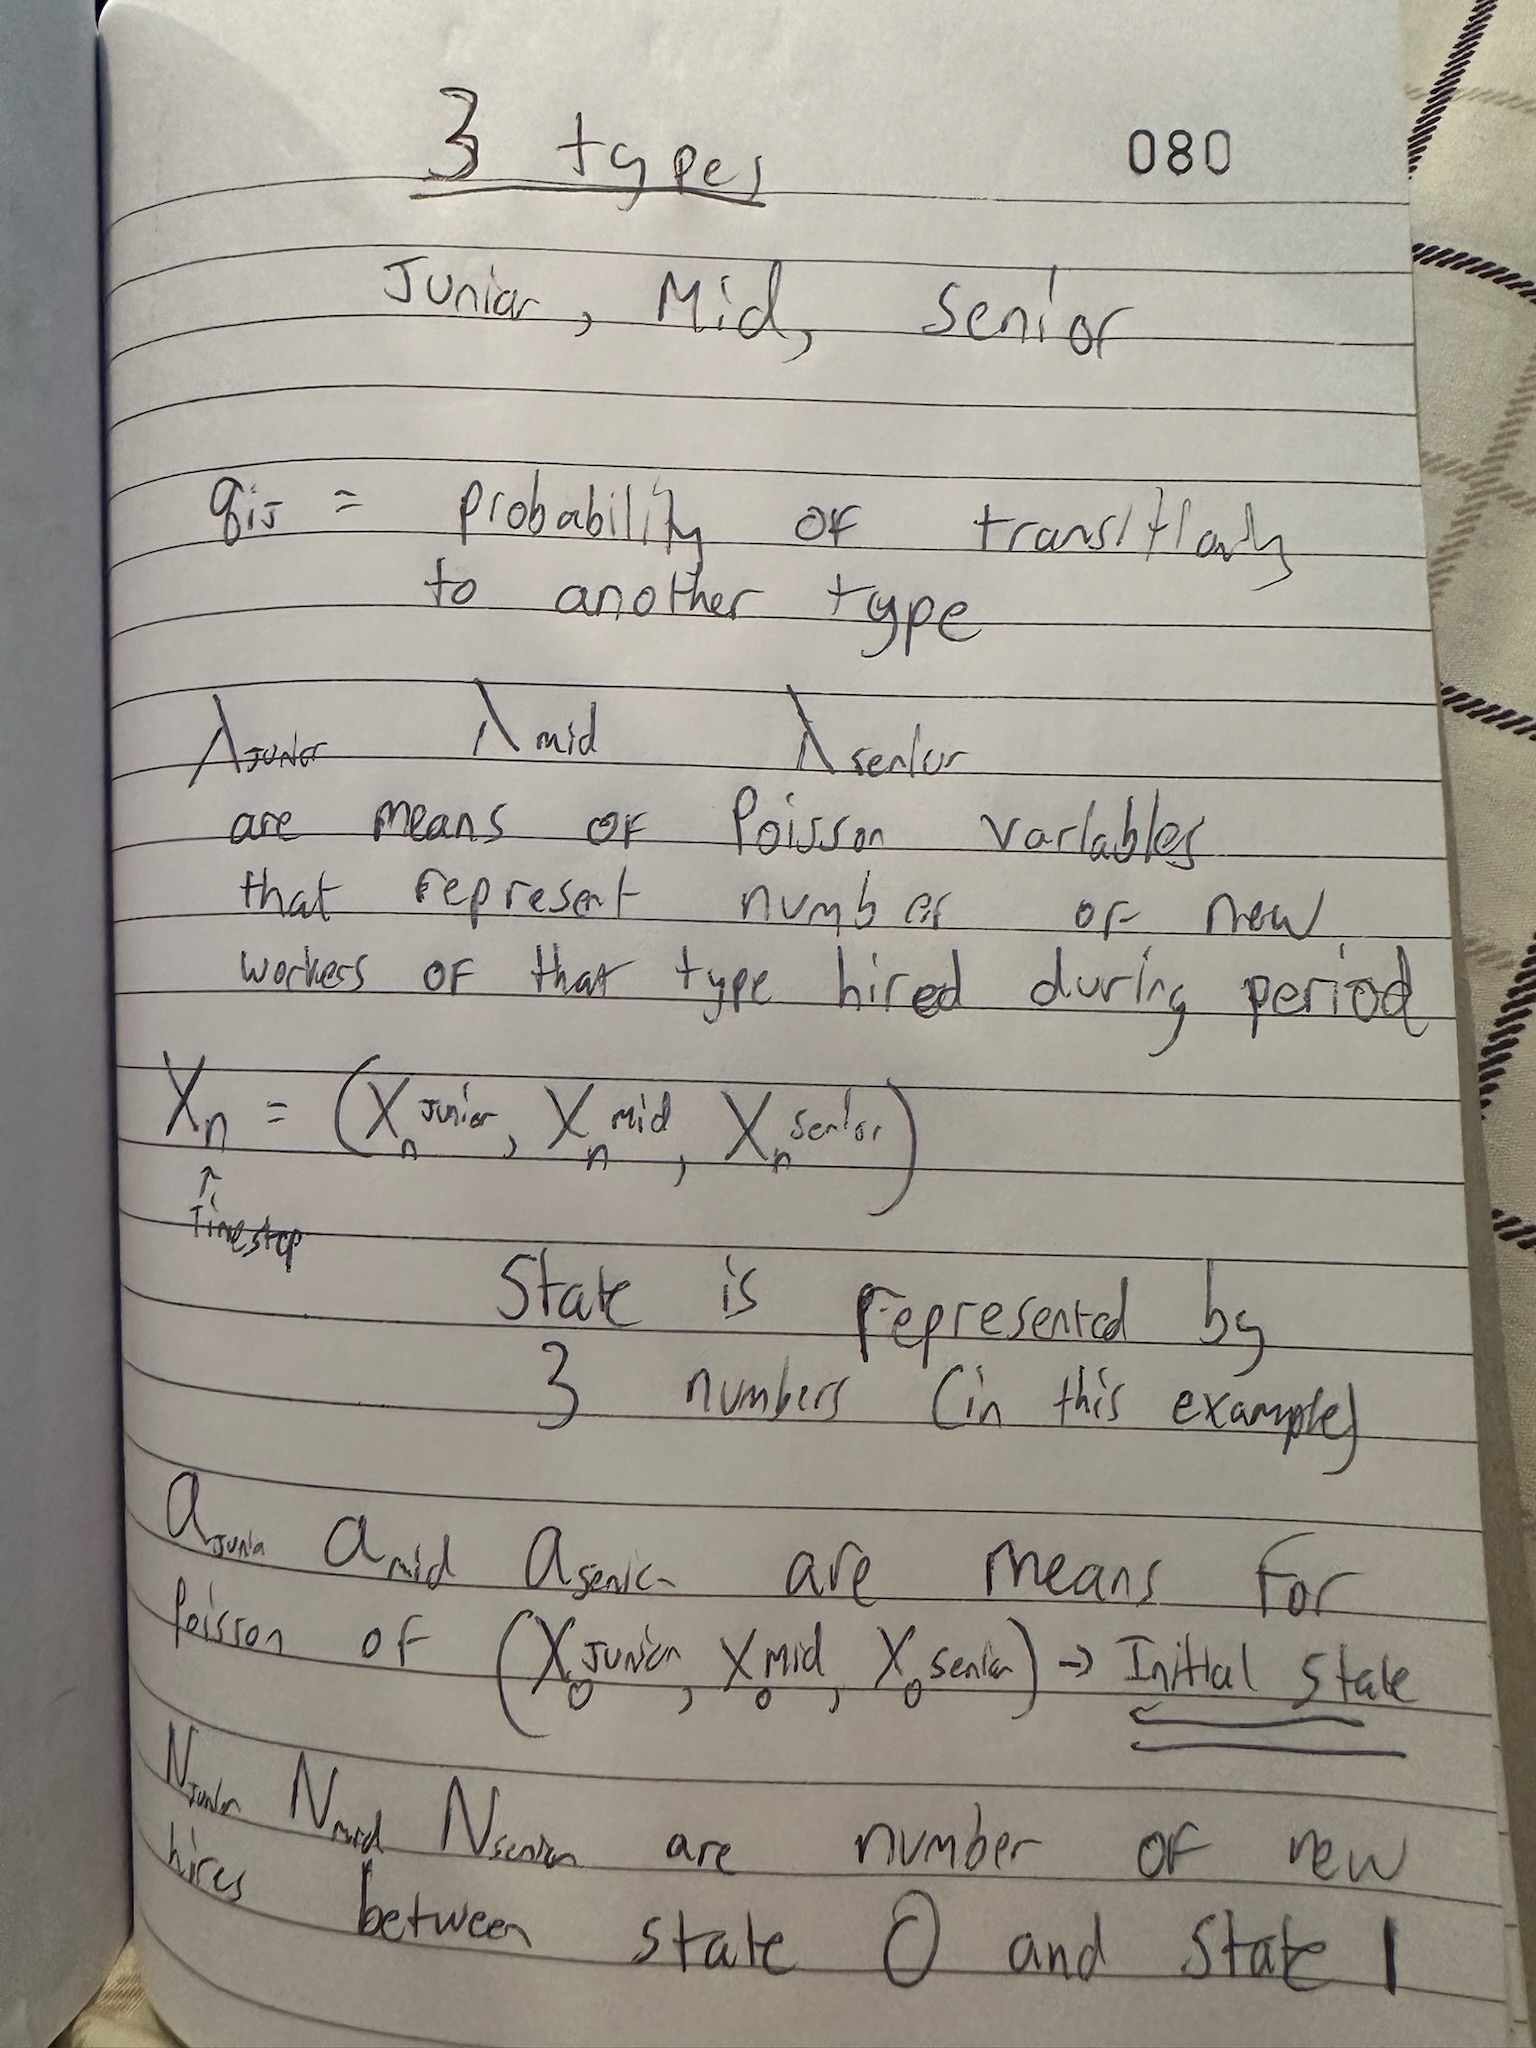 3 types
080
Junior, Mid, Senior
qij = probability of transitioning
to another type
λJunior λmid λsenior
are means of Poisson variables
that represent number of new
workers of that type hired during period
Xn = (Xn^Junior, Xn^mid, Xn^senior)
↑
Timestep
State is represented by
3 numbers (in this example)
aJunior amid asenior are means for
Poisson of (X0^Junior, X0^Mid, X0^senior) → Initial State
NJunior Nmid Nsenior are number of new
hires between state 0 and state 1